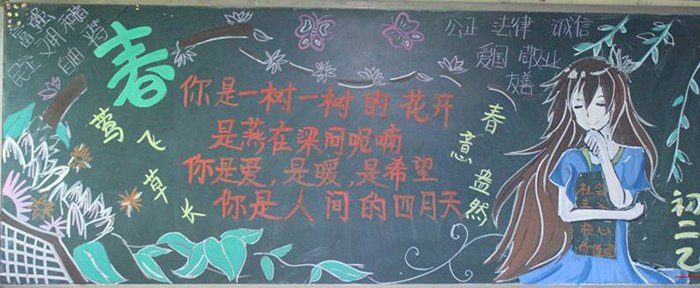 富强
文明 和谐
民主 自由
春
公正 法律 诚信
爱国 敬业
友善
你是一树一树的花开
是燕在梁间呢喃
你是爱,是暖,是希望
你是人间的四月天
莺飞草长
春意盎然
社会
核心
初二乙